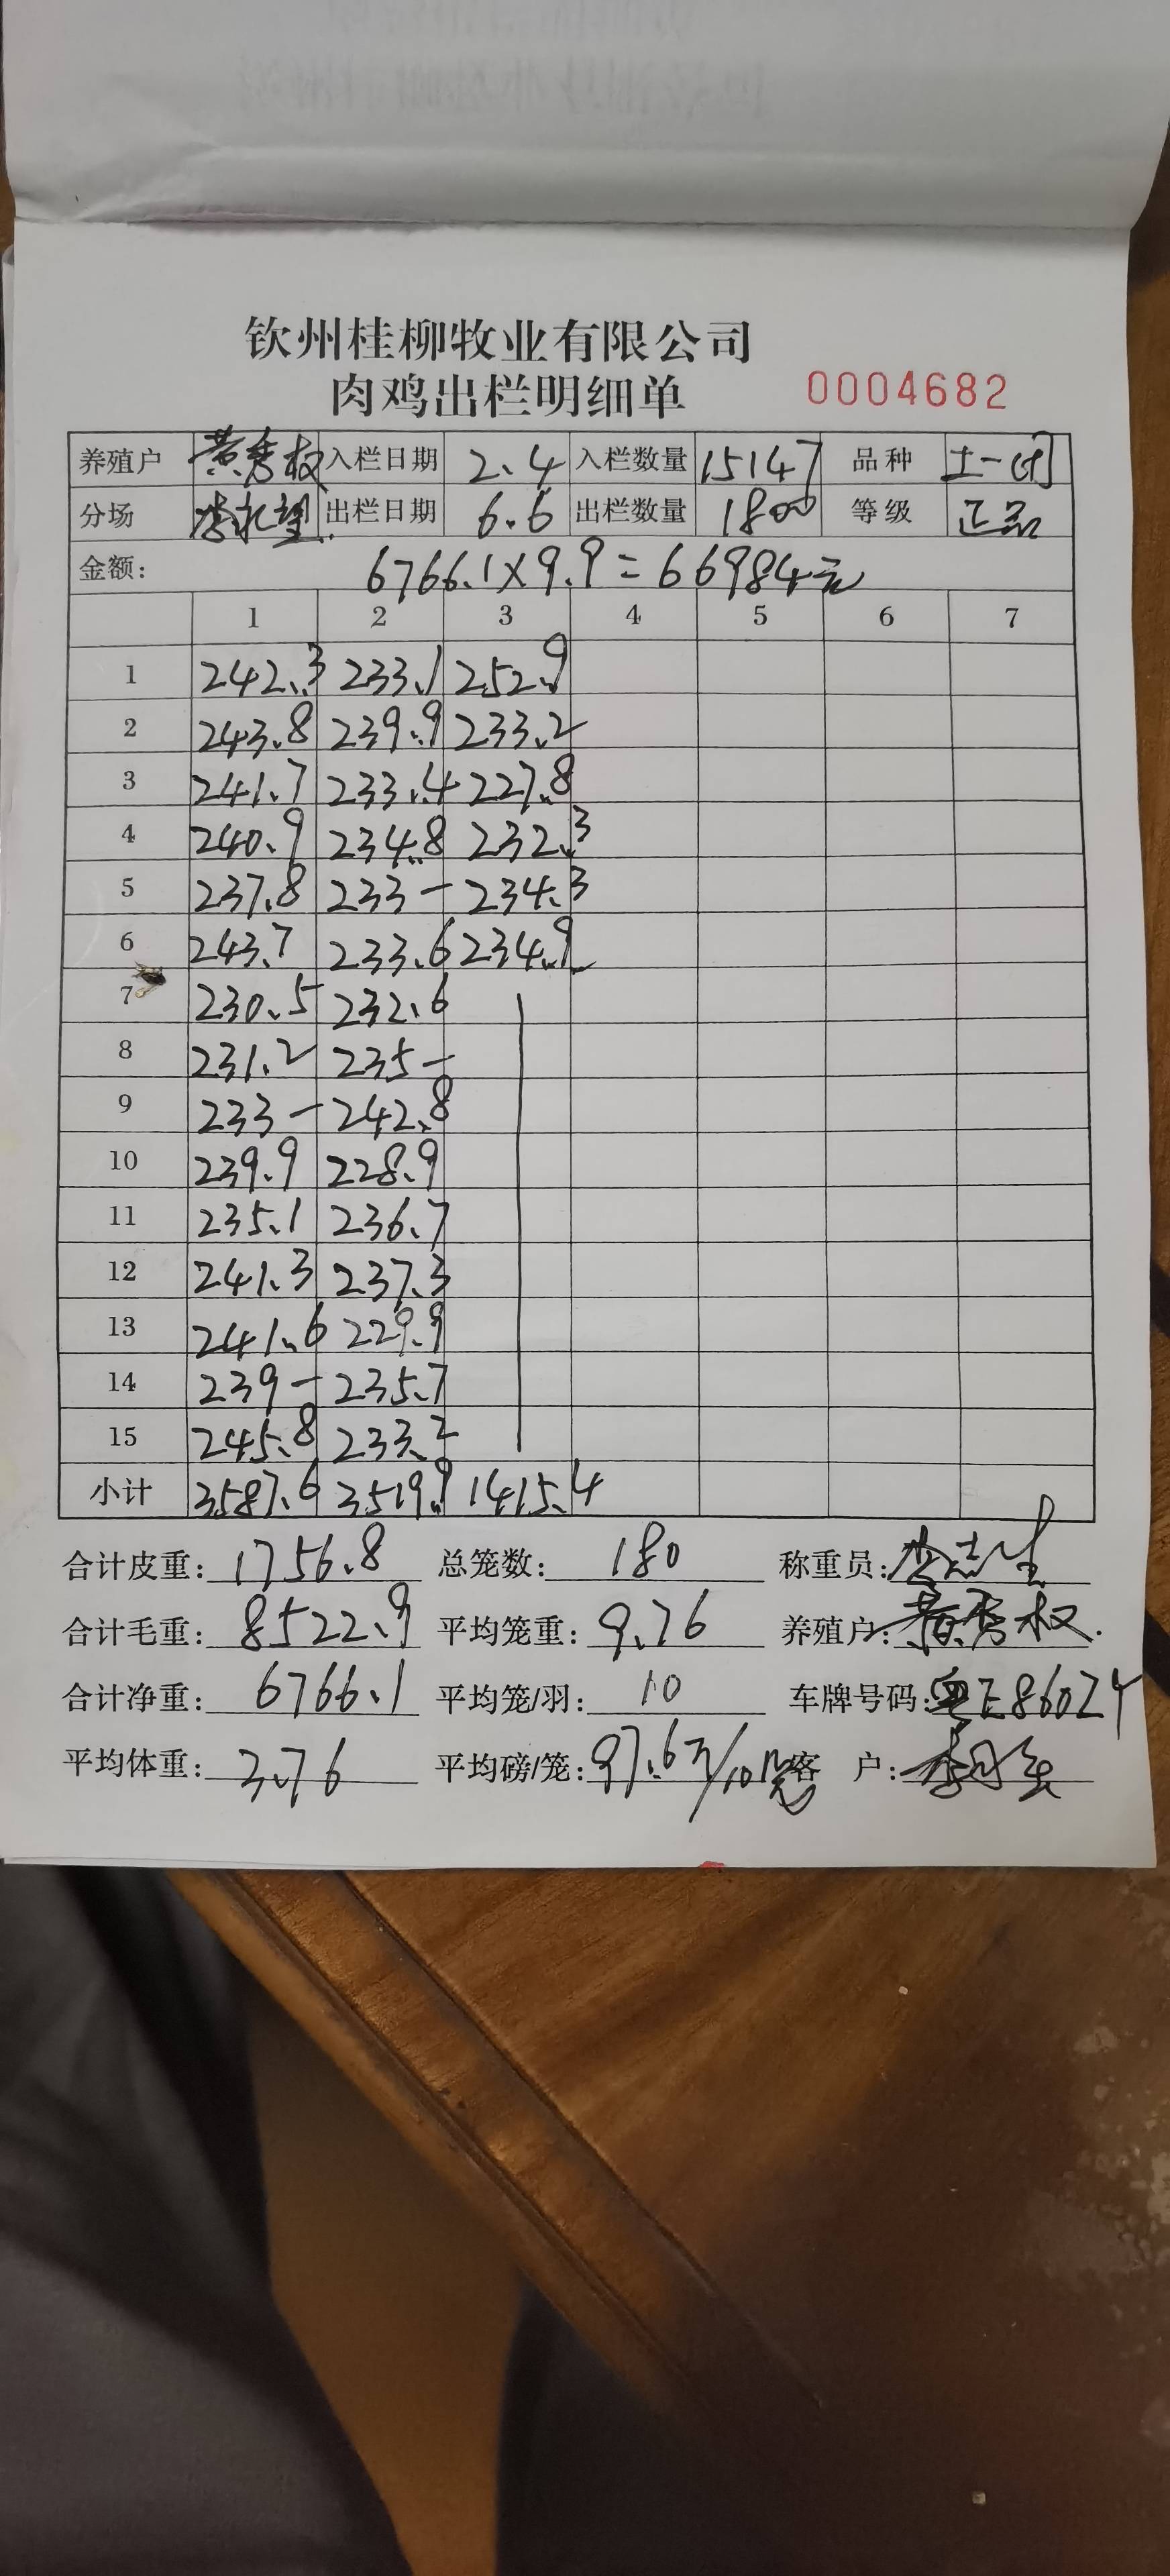 钦州桂柳牧业有限公司
肉鸡出栏明细单 0004682
养殖户 黄秀权 入栏日期 2.4 入栏数量 15147 品种 土一
分场 出栏日期 6.6 出栏数量 1800 等级 正品
金额: 6766.1×9.9=66984元
1 2 3 4 5 6 7
1 242.3 233.1 252.9
2 243.8 239.9 233.2
3 241.7 233.4 227.8
4 240.9 234.8 232.3
5 237.8 233- 234.3
6 243.7 233.6 234.9
7 230.5 232.6
8 231.2 235-
9 233- 242.8
10 239.9 228.9
11 235.1 236.7
12 241.3 237.3
13 241.6 229.9
14 239- 235.7
15 245.8 233.2
小计 3587.6 3519.9 1415.4
合计皮重: 1756.8 总笼数: 180 称重员:
合计毛重: 8522.9 平均笼重: 9.76 养殖户: 黄秀权.
合计净重: 6766.1 平均笼/羽: 10 车牌号码: 粤E8602Y
平均体重: 3.76 平均磅/笼: 97.6斤/10 客 户: